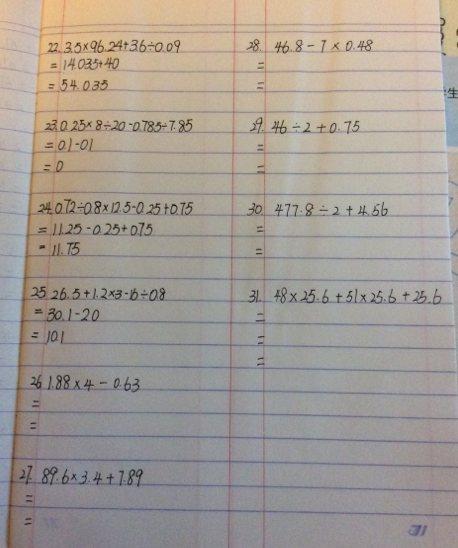 22. 3.5×96.24+3.6÷0.09
= 14.035+40
= 54.035
23. 0.25×8÷20-0.785÷7.85
= 0.1-0.1
= 0
24. 0.72÷0.8×12.5-0.25+0.75
= 11.25-0.25+0.75
= 11.75
25. 26.5+1.2×3-16÷0.8
= 30.1-20
= 10.1
26. 1.88×4-0.63
=
=
27. 89.6×3.4+7.89
=
=
28. 46.8-7×0.48
=
=
29. 46÷2+0.75
=
=
30. 477.8÷2+4.56
=
=
31. 48×25.6+51×25.6+25.6
=
=
=
生